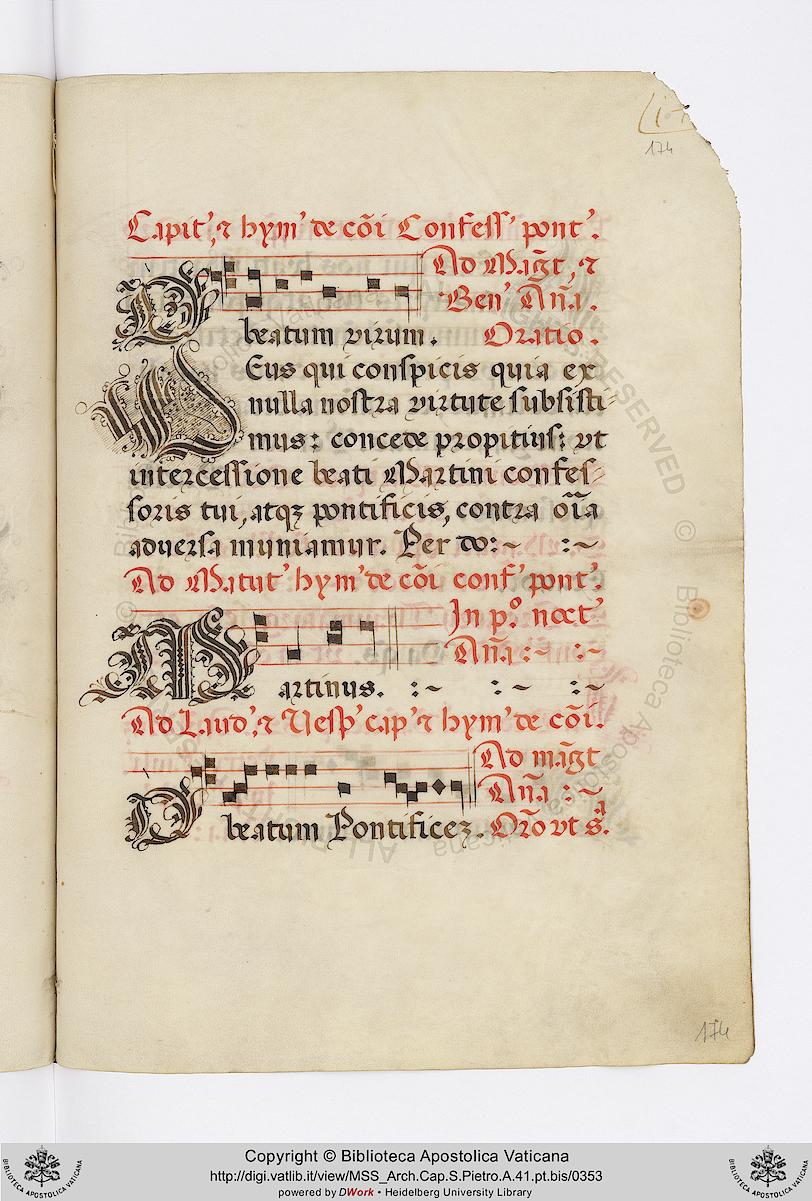 174
Capit', ⁊ hym' de cõi Confess' pont'.
Ad Mag̃t, ⁊
Ben' Añа.
O beatum virum. Oratio.
DEus qui conspicis quia ex
nulla nostra virtute subsisti
mus: concede propitius: vt
intercessione beati Martini confes-
soris tui, atqꝫ pontificis, contra oĩa
aduersa muniamur. Per do:~ :~
Ad Matut' hym' de cõi conf' pont'.
In p.º noct'
Añа :~ :~
MArtinus. :~ :~ :~
Ad Laud', ⁊ Vesp' cap' ⁊ hym' de cõi.
Ad mag̃t
Añа :~
O beatum Pontificeꝫ. Orõ vt s.ª
174
Copyright © Biblioteca Apostolica Vaticana
http://digi.vatlib.it/view/MSS_Arch.Cap.S.Pietro.A.41.pt.bis/0353
powered by DWork • Heidelberg University Library